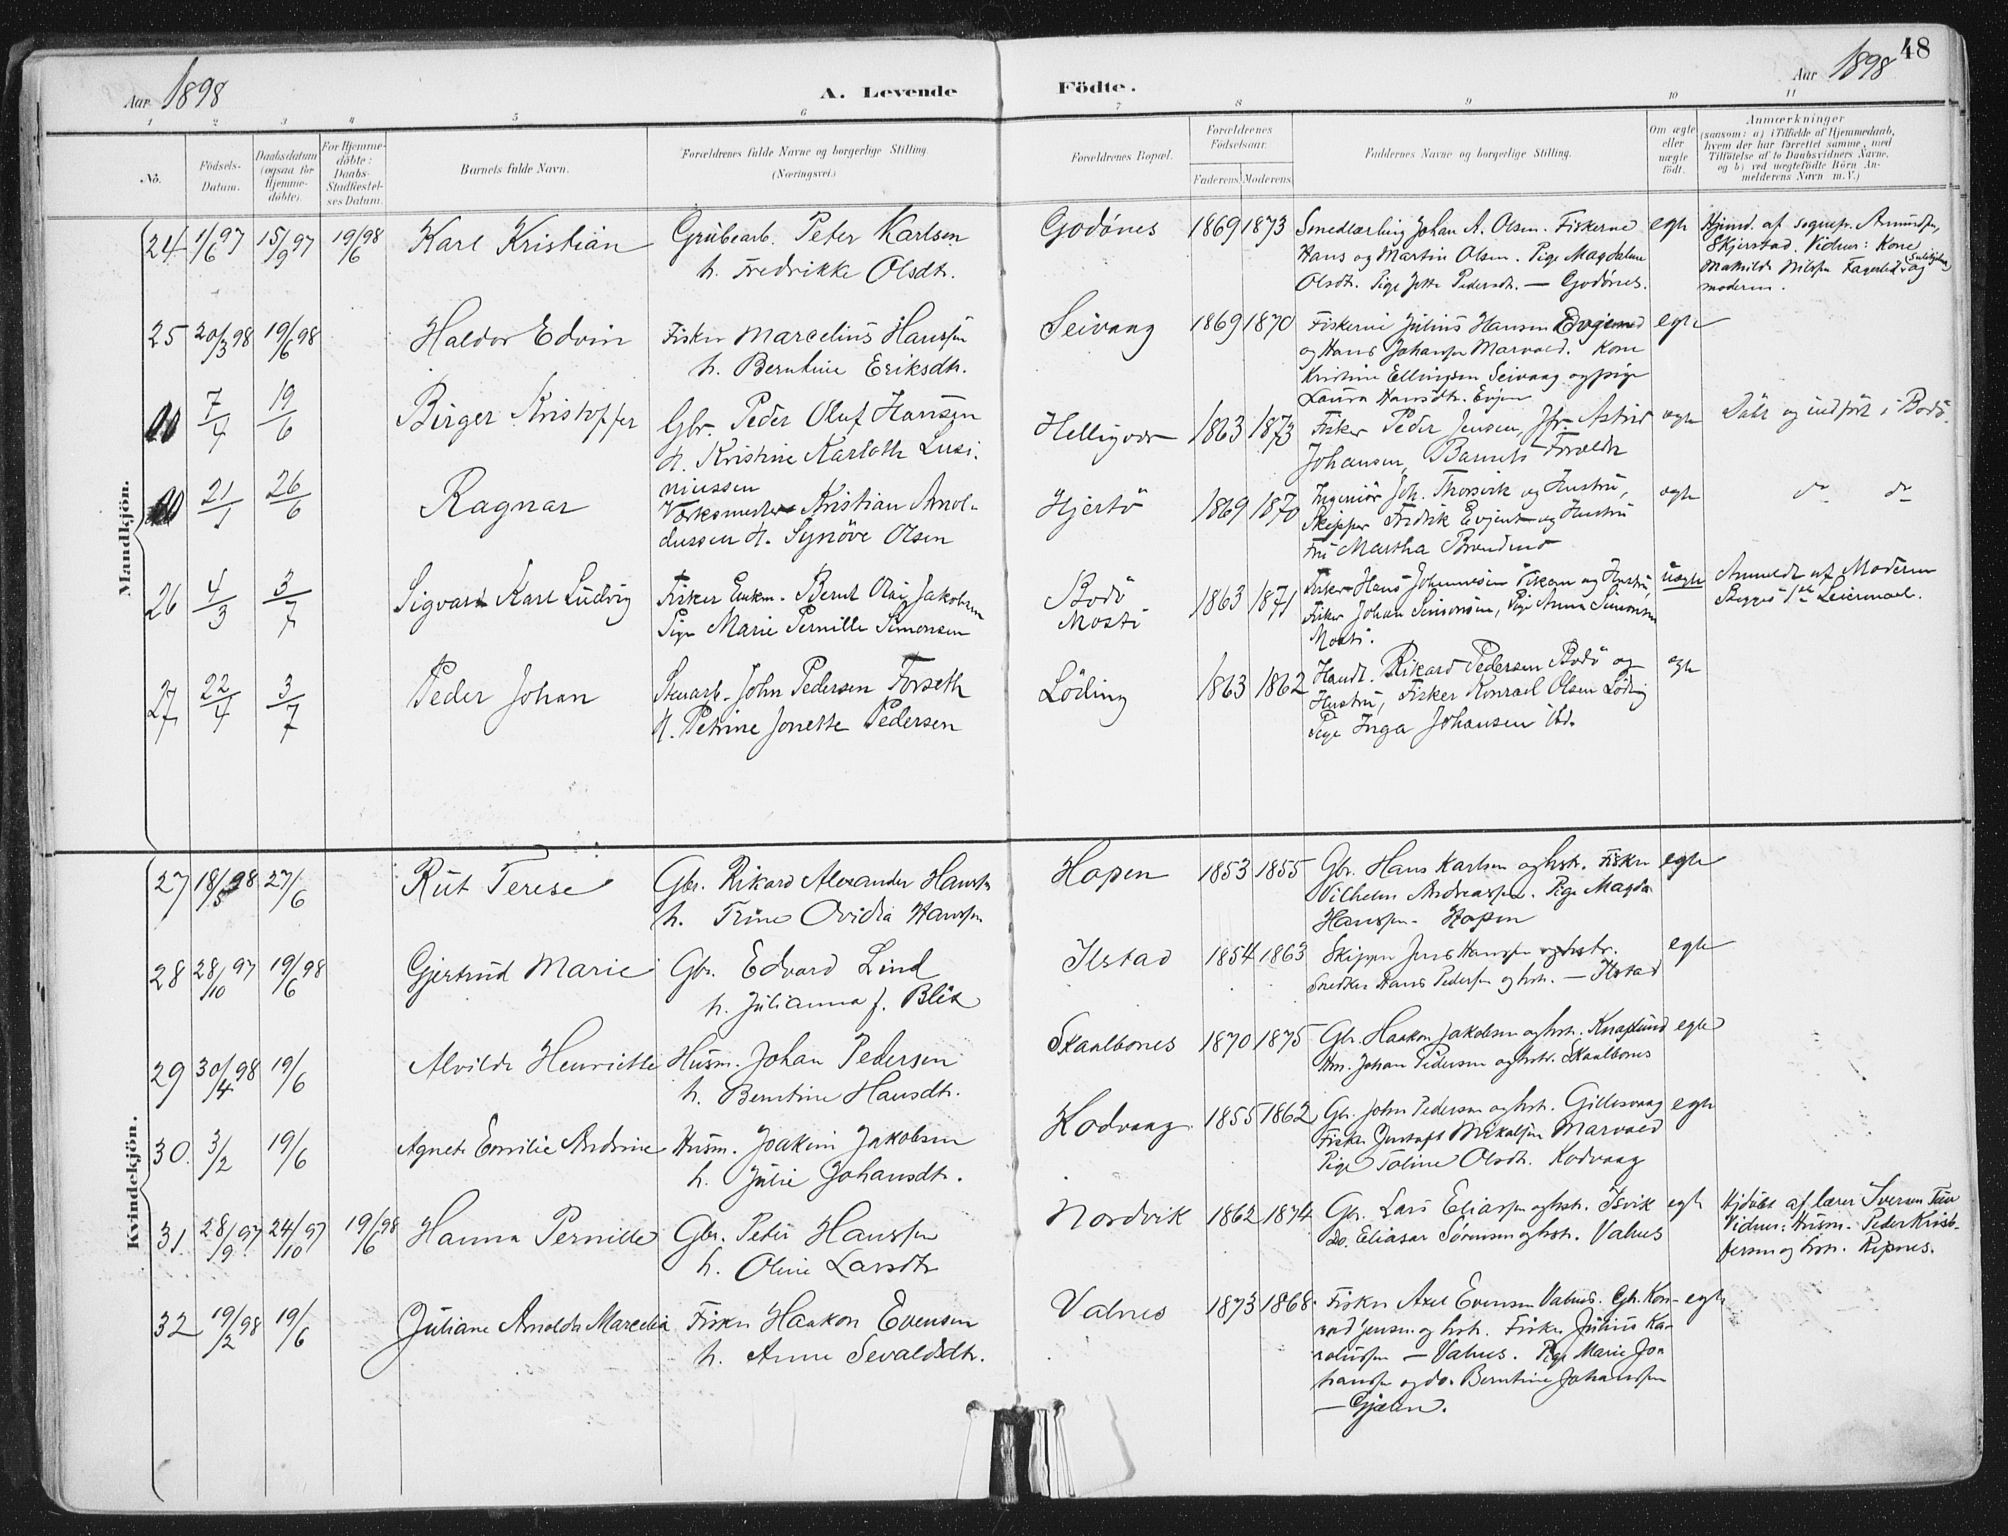 48
Aar 1898
A. Levende Födte.
Aar 1898
1 2 3 4 5 6 7 8 9 10 11
No.
Födsels-Datum.
Daabsdatum (ogsaa for Hjemme-døbte).
For Hjemme-døbte: Daabs-Stadfæstel-ses Datum.
Barnets fulde Navn.
Forældrenes fulde Navne og borgerlige Stilling.
(Næringsvei.)
Forældrenes Bopæl.
Forældrenes Födselsaar.
Faderens. Moderens.
Faddernes Navne og borgerlige Stilling.
Om ægte eller uægte født.
Anmærkninger
(saasom: a) i Tilfælde af Hjemmedaab, hvem der har forrettet samme, med Tilföielse af to Daabsvidners Navne, og b) ved uægtefödte Börn An-melderens Navn m. V.)
Mandkjön.
24 1/6 97 15/9 97 19/6 98 Karl Kristian
Grubearb. Peter Karlsen
h. Fredrikke Olsdtr.
Godønes 1869 1873
Smedlærling Johan A. Olsen. Fiskerne
Hans og Martin Olsen. Pige Magdalene
Olsdtr. Pige Jette Pedersdtr. — Godønes.
egte
Hjmd. af sognepr. Amundsen,
Skjerstad. Vidner: Kone
Mathilde Nilsen Fagerli, og
moderen.
25 20/3 98 19/6 98 Haldor Edvin
Fisker Marcelius Hansen
h. Berntine Eriksdtr.
Seivaag 1869 1870
Fiskerne Julius Hansen
og Hans Johansen Marvold. Kone
Kristine Ellingsen Seivaag og pige
Laura Hansdtr. Evjen
egte
7/4 19/6 Birger Kristoffer
Gbr. Peder Oluf Hansen
h. Kristine Karloth Lusi-
niussen
Helligvær 1863 1873
Fisker Peder Jensen, Jfr. Astrid
Johansen, Barnets Forældre
ægte
Døbt og indført i Bodø.
21/1 26/6 Ragnar
Værksmester Kristian Arnol-
dussen h. Synöve Olsen
Hjertö 1869 1870
Ingeniør Joh. Thorsvik og Hustru,
Skipper Fredrik Evjent og Hustru
Fru Martha
ægte
do do
26 4/3 3/7 Sigvart Karl Ludvig
Fisker Enkm. Bernt Olai Jakobsen
Pige Marie Pernille Simonsen
Bodö
Mosti
1863 1871
Fisker Hans Johannesen og Hustru,
Fisker Johan Simonsen, Pige Anna Simonsen
Mosti.
uægte
Anmeldt af Moderen
Begges 1ste Leiermaal.
27 22/4 3/7 Peder Johan
Stenarb. John Pedersen Forseth
h. Petrine Jonette Pedersen
Löding 1863 1862
Handl. Rikard Pedersen Bodö og
Hustru, Fisker Konrad Olsen Löding
Pige Inga Johansen ibd.
egte
Kvindekjön.
27 18/5 98 27/6 Rut Terese
Gbr. Rikard Alexander Hansen
h. Trine Ovidia Hansen
Hopen 1853 1855
Gbr. Hans Karlsen og hstr. Fisker
Vilhelm Andreassen. Pige Magda
Hansen. Hopen
egte
28 28/10 97 19/6 98 Gjertrud Marie
Gbr. Edvard Lind
h. Julianna f. Blix
Ilstad 1854 1863
Skipper Jens Hansen og hstr.
Snedker Hans Pedersen og hstr. — Ilstad
egte
29 30/4 98 19/6 Alvilde Henriette
Husm. Johan Pedersen
h. Berntine Hansdtr.
Skaalbones 1870 1875
Gbr. Haakon Jakobsen og hstr. Knaplund
Hm. Johan Pedersen og hstr. Skaalbones
egte
30. 3/2 19/6 Agnete Emilie Andrine
Husm. Joakim Jakobsen
h. Julie Johansdtr.
Kodvaag 1855 1862
Gbr. John Pedersen og hstr. Gillesvaag
Fisker Gustaf Mikalsen Marvold
Pige Taline Olsdtr. Kodvaag
egte
31. 28/9 97 24/10 97 19/6 98 Hanna Pernille
Gbr. Peter Hansen
h. Oline Larsdtr
Nordvik 1862 1874
Gbr. Lars Eliassen og hstr. Isvik
Do. Eliasar Sørensen og hstr. Valnes
egte
Hjdöbt af lærer Iversen
Vidner: Husm. Peder Krist-
fersen og hstr. Ripnes.
32 19/2 98 19/6 Juliane Arnolda Marcelia
Fisker Haakon Evensen
h. Anne Sevaldsdtr.
Valnes 1873 1868
Fisker Axel Evensen Valnes. Gbr. Kon-
rad Jensen og hstr. Fisker Julius Ka-
roliussen — Valnes. Pige Marie Jo-
hansen og do. Berntine Johansen
— Gjælen.
egte